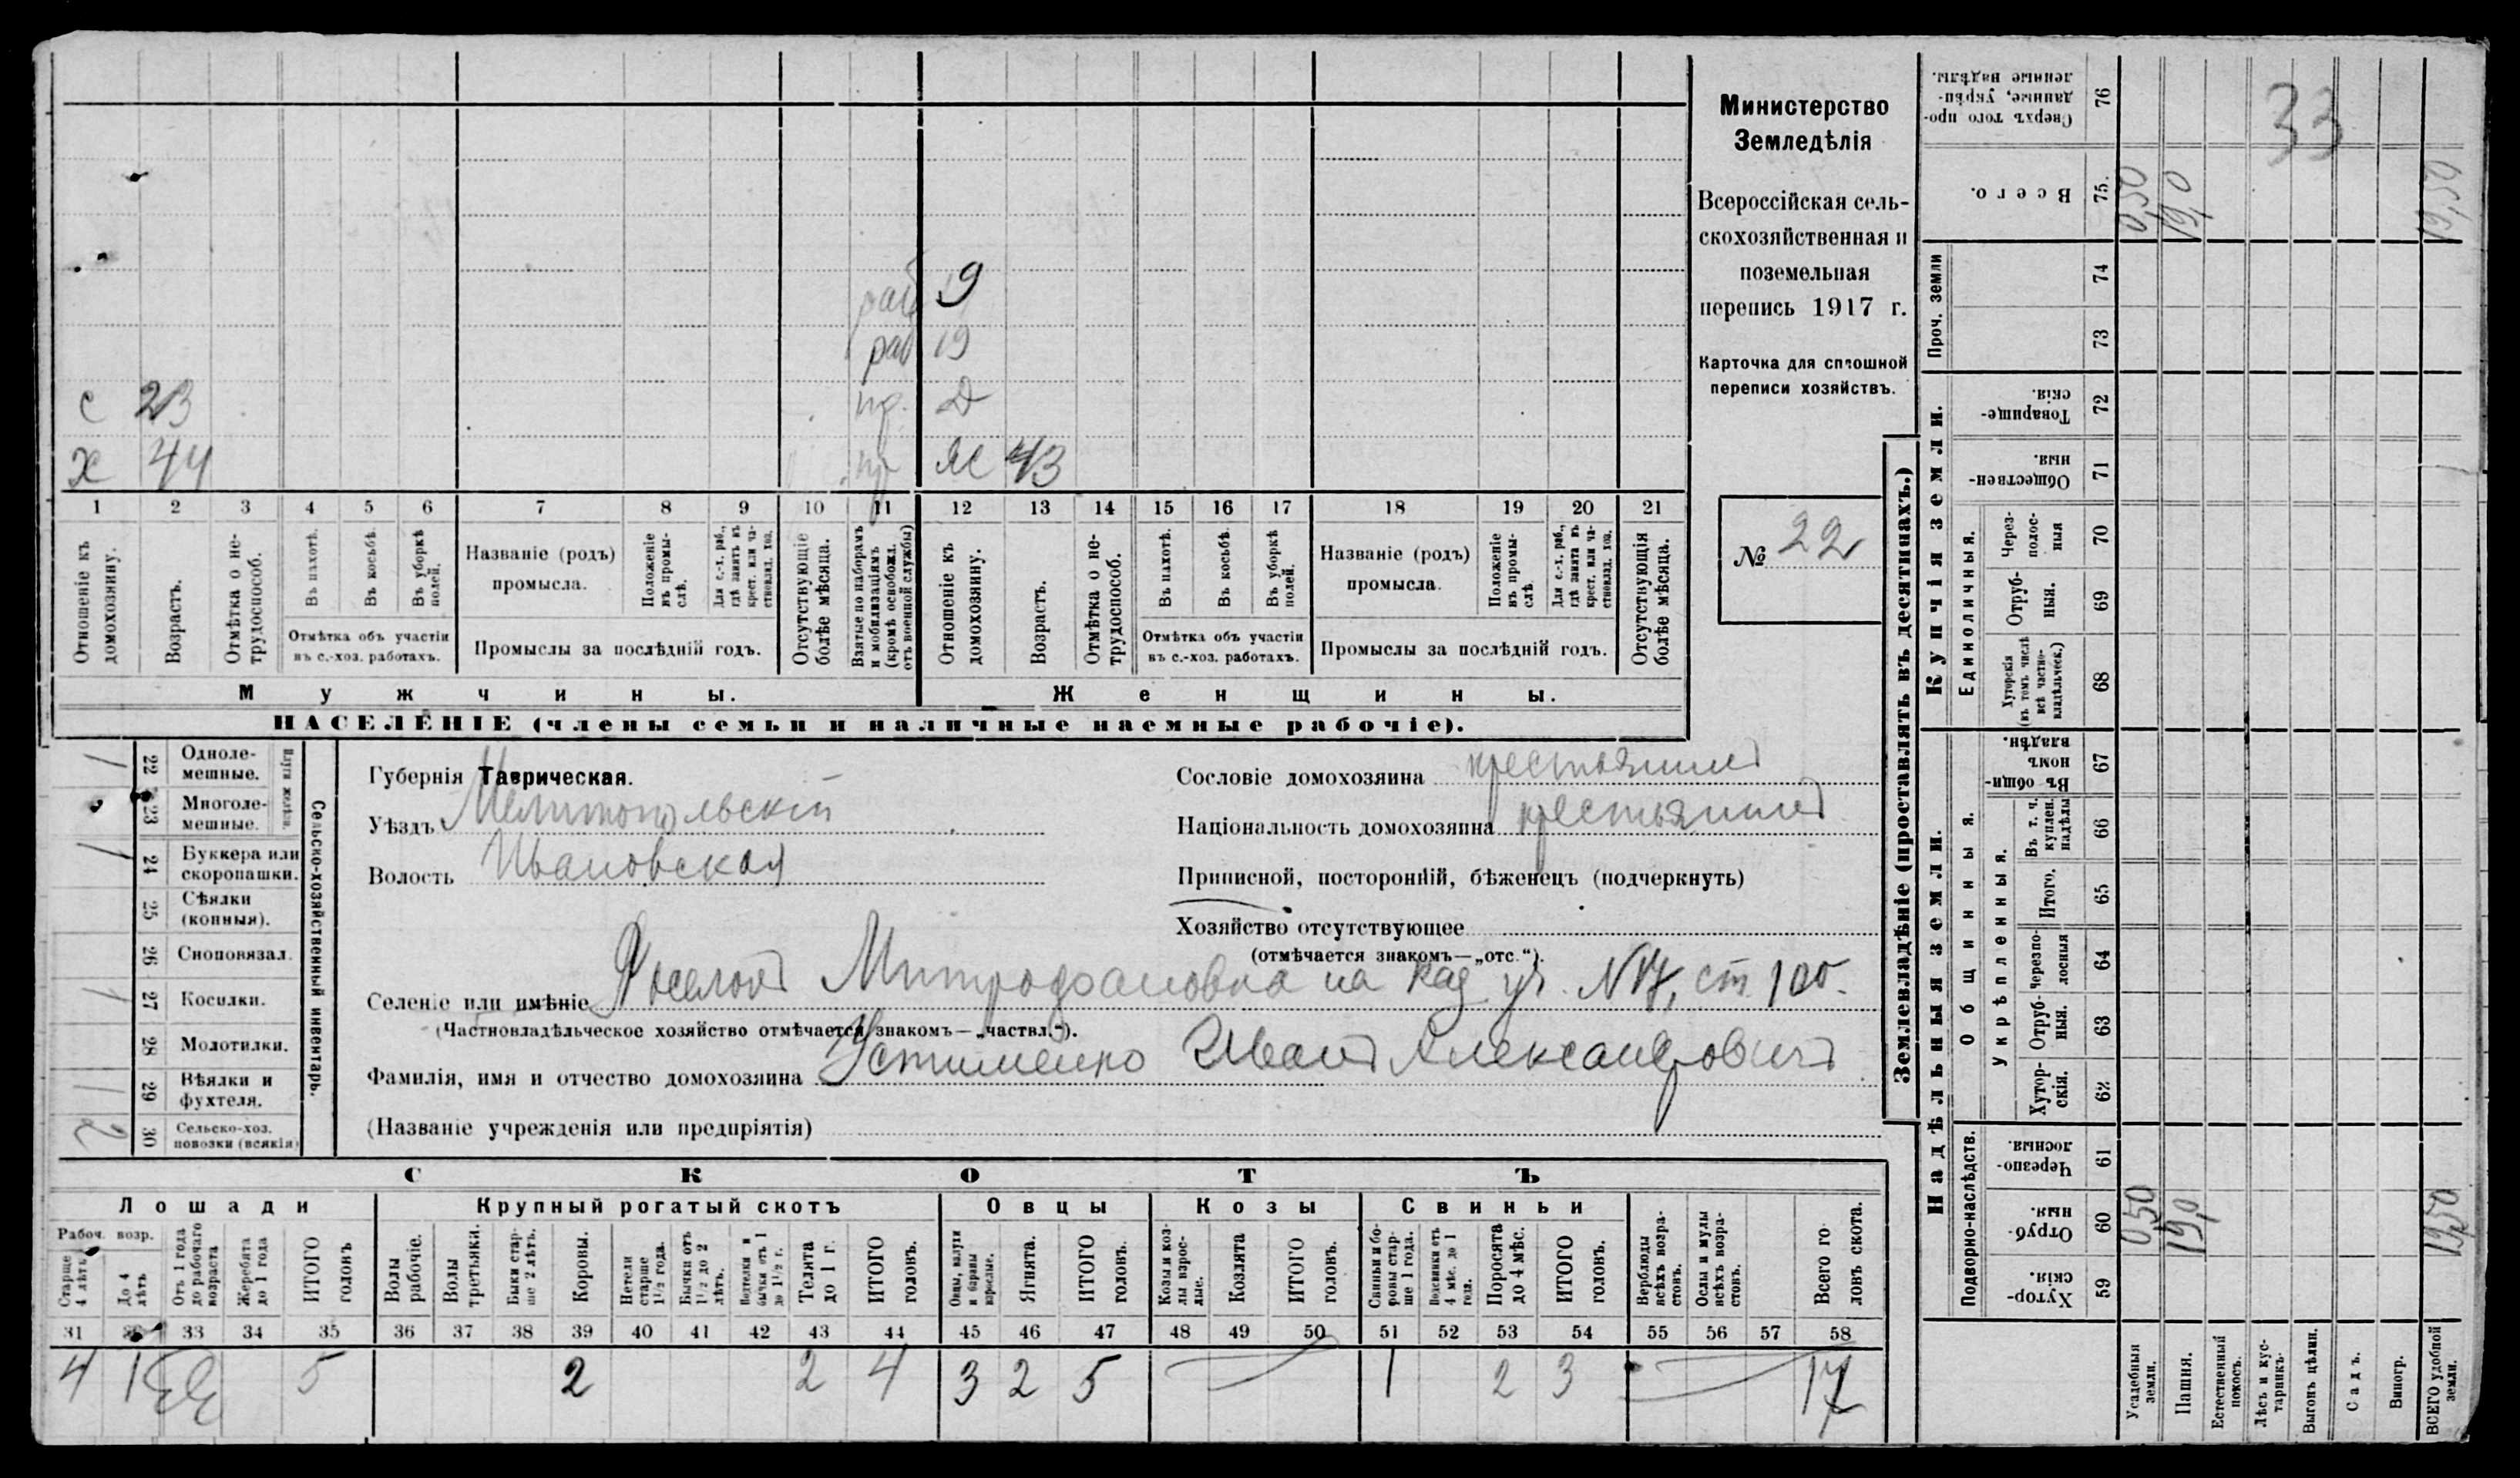 Министерство
Земледѣлія
Всероссійская сель-
скохозяйственная и
поземельная
перепись 1917 г.
Карточка для сплошной
переписи хозяйствъ.
№ 22
33
раб 9
раб 19
с 23 пр. Д
х 44 пр ж 43
1 2 3 4 5 6 7 8 9 10 11 12 13 14 15 16 17 18 19 20 21
Отношеніе къ домохозяину.
Возрастъ.
Отмѣтка о не-трудоспособ.
Въ пахотѣ.
Въ косьбѣ.
Въ уборкѣ полей.
Отмѣтка объ участіи
въ с.-хоз. работахъ.
Названіе (родъ)
промысла.
Положеніе въ промы-слѣ.
Для с.-х. раб., гдѣ занятъ въ крест. или ча-стновлад. хоз.
Промыслы за послѣдній годъ.
Отсутствующіе болѣе мѣсяца.
Взятые по наборамъ и мобилизаціямъ (кромѣ освобожд. отъ военной службы)
Отношеніе къ домохозяину.
Возрастъ.
Отмѣтка о не-трудоспособ.
Въ пахотѣ.
Въ косьбѣ.
Въ уборкѣ полей.
Отмѣтка объ участіи
въ с.-хоз. работахъ.
Названіе (родъ)
промысла.
Положеніе въ промы-слѣ.
Для с.-х. раб., гдѣ занята въ крест. или ча-стновлад. хоз.
Промыслы за послѣдній годъ.
Отсутствующія болѣе мѣсяца.
Мужчины. Женщины.
НАСЕЛЕНІЕ (члены семьи и наличные наемные рабочіе).
Сельско-хозяйственный инвентарь.
Плуги желѣзн.
22 Однолемешные. 1
23 Многолемешные.
24 Буккера или скоропашки. 1
25 Сѣялки (конныя).
26 Сноповязал.
27 Косилки. 1
28 Молотилки.
29 Вѣялки и фухтеля. 1
30 Сельско-хоз. повозки (всякія) 2
Губернія Таврическая.
Уѣздъ Мелитопольскій
Волость Ивановская
Сословіе домохозяина крестьянинъ
Національность домохозяина крестьянинъ
Приписной, посторонній, бѣженецъ (подчеркнуть)
Хозяйство отсутствующее
(отмѣчается знакомъ—„отс.“).
Селеніе или имѣніе Митрофановка на Каз. уч. N 17, ст. 100.
(Частновладѣльческое хозяйство отмѣчается знакомъ—„частвл.“).
Фамилія, имя и отчество домохозяина Устименко Иванъ Александровичъ
(Названіе учрежденія или предпріятія)
СКОТЪ
Лошади Крупный рогатый скотъ Овцы Козы Свиньи
Рабоч. возр.
Старше 4 лѣтъ
До 4 лѣтъ
Отъ 1 года до рабочаго возраста
Жеребята до 1 года
ИТОГО головъ
Волы рабочіе.
Волы третьяки.
Быки стар-ше 2 лѣтъ.
Коровы.
Нетели старше 1½ года.
Бычки отъ 1½ до 2 лѣтъ.
Нетелки и бычки отъ 1 до 1½ г.
Телята до 1 г.
ИТОГО головъ.
Овцы, валухи и бараны взрослые.
Ягнята.
ИТОГО головъ.
Козы и коз-лы взрос-лые.
Козлята
ИТОГО головъ.
Свиньи и бо-ровы стар-ше 1 года.
Подсвинки отъ 4 мѣс. до 1 года.
Поросята до 4 мѣс.
ИТОГО головъ.
Верблюды всѣхъ возра-стовъ.
Ослы и мулы всѣхъ возра-стовъ.
Всего го-ловъ скота.
31 32 33 34 35 36 37 38 39 40 41 42 43 44 45 46 47 48 49 50 51 52 53 54 55 56 57 58
4 1 5 2 2 4 3 2 5 1 2 3 17
Землевладѣніе (проставлять въ десятинахъ.)
Надѣльныя земли. Купчія земли. Проч. земли
Подворно-наслѣдств. Общинныя. Единоличныя.
Укрѣпленныя.
59 Хутор-скія.
60 Отруб-ныя.
61 Черезпо-лосныя.
62 Хутор-скія.
63 Отруб-ныя.
64 Черезпо-лосныя
65 Итого.
66 Въ т. ч. куплен. надѣлы
67 Въ общи-номъ владѣн.
68 Хуторскія (въ томъ числѣ всѣ частно-владѣльческ.)
69 Отруб-ныя.
70 Через-полос-ныя
71 Обществен-ныя.
72 Товарище-скія.
73
74
75. Всего.
76 Сверхъ того про-данные, укрѣп-ленные надѣлы.
Усадебныя земли. 0,50 0,50
Пашня. 19,0 19,0
Естественный покосъ.
Лѣсъ и кус-тарникъ.
Выгонъ цѣлин.
Садъ.
Виногр.
ВСЕГО удобной земли. 19,50 19,50